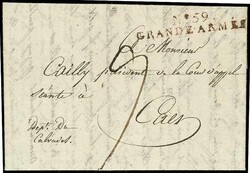 N° 59
GRANDE ARMÉE
A Monsieur
Cailly président de la Cour d'appel
séante à
Caen
Dépt. Du
Calvados.